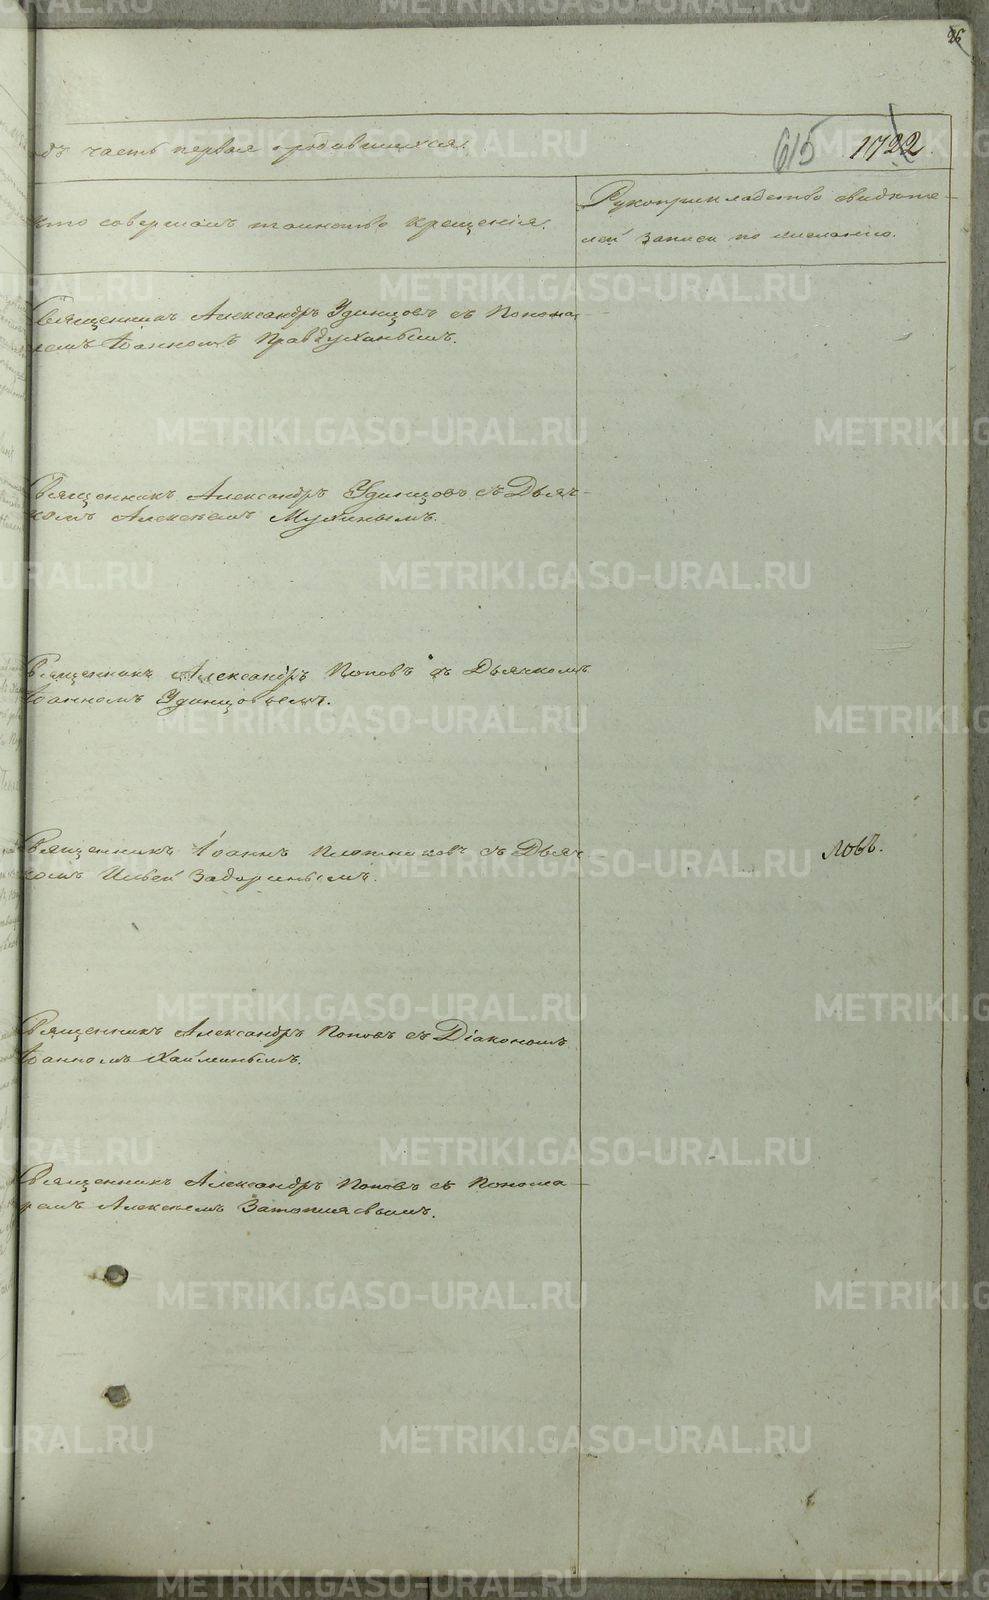 26
615 1722
одъ часть первая о родившихся.
Кто совершалъ таинство крещенія.
Рукоприкладство свидѣте-
лей записи по желанію.
Священникъ Александръ Удинцовъ съ Понома-
ремъ Іоанномъ Правдухинымъ.
Священникъ Александръ Удинцовъ съ Дьяч-
комъ Алексѣемъ Мухинымъ.
Священникъ Александръ Поповъ съ Дьячкомъ
Іоанномъ Удинцовымъ.
Священникъ Іоаннъ Плотниковъ съ Дьяч
комъ Ильей Задоринымъ.
ловъ.
Священникъ Александръ Поповъ съ Діакономъ
Іоанномъ Хайминымъ.
Священникъ Александръ Поповъ съ Понома-
ремъ Алексѣемъ Затопляевымъ.
METRIKI.GASO-URAL.RU